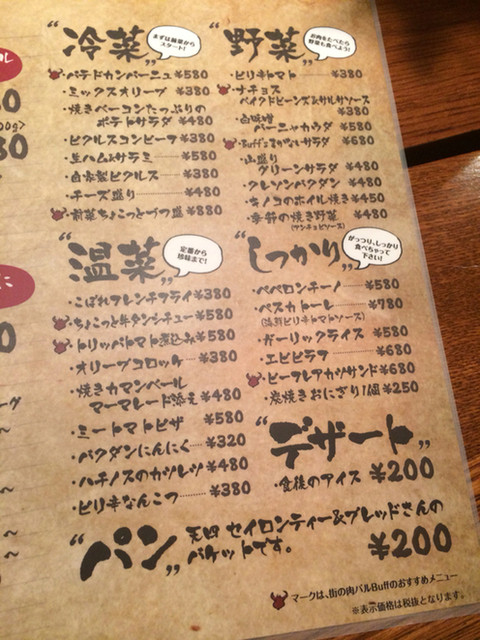 “冷菜”
まずは前菜から
スタート!
・パテドカンパーニュ ¥580
・ミックスオリーブ ¥380
・焼きベーコンたっぷりの
ポテトサラダ ¥480
・ピクルスコンビーフ ¥380
・生ハム&サラミ ¥580
・自家製ピクルス ¥380
・チーズ盛り ¥480
・前菜ちょこっとづつ盛 ¥880
“野菜”
お肉をたべたら
野菜も食べよう!
・ピリ辛トマト ¥380
・ナチョス
ベイクドビーンズ&サルサソース
¥380
・白味噌
バーニャカウダ ¥580
・Buff'sサラダ ¥680
・山盛り
グリーンサラダ ¥480
・クレソンバクダン ¥480
・キノコのホイル焼き ¥450
・季節の焼き野菜 ¥480
(アンチョビソース)
“温菜”
定番から
珍味まで!
・こぼれフレンチフライ ¥380
・ちょこっと牛タンシチュー ¥580
・トリッパトマト煮込み ¥580
・オリーブコロッケ ¥380
・焼きカマンベール
マーマレード添え ¥480
・ミートマトピザ ¥580
・バクダンにんにく ¥320
・ハチノスのカツレツ ¥480
・ピリ辛なんこつ ¥380
“しっかり”
がっつり、しっかり
食べちゃって
下さい!
・ペペロンチーノ ¥580
・ペスカトーレ ¥780
(海鮮ピリ辛トマトソース)
・ガーリックライス ¥580
・エビピラフ ¥680
・ビーフレアカツサンド ¥680
・炭焼きおにぎり1個 ¥250
“デザート”
・食後のアイス ¥200
“パン”
天四 セイロンティー&ブレッドさんの
バケットです。
¥200
マークは、街の肉バルBuffのおすすめメニュー
※表示価格は税抜となります。